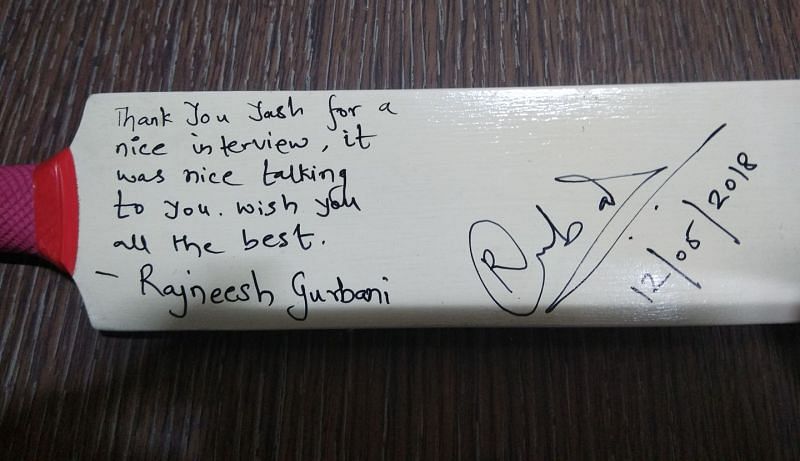 Thank You Yash for a
nice interview, it
was nice talking
to you. wish you
all the best.
- Rajneesh Gurbani
12/05/2018